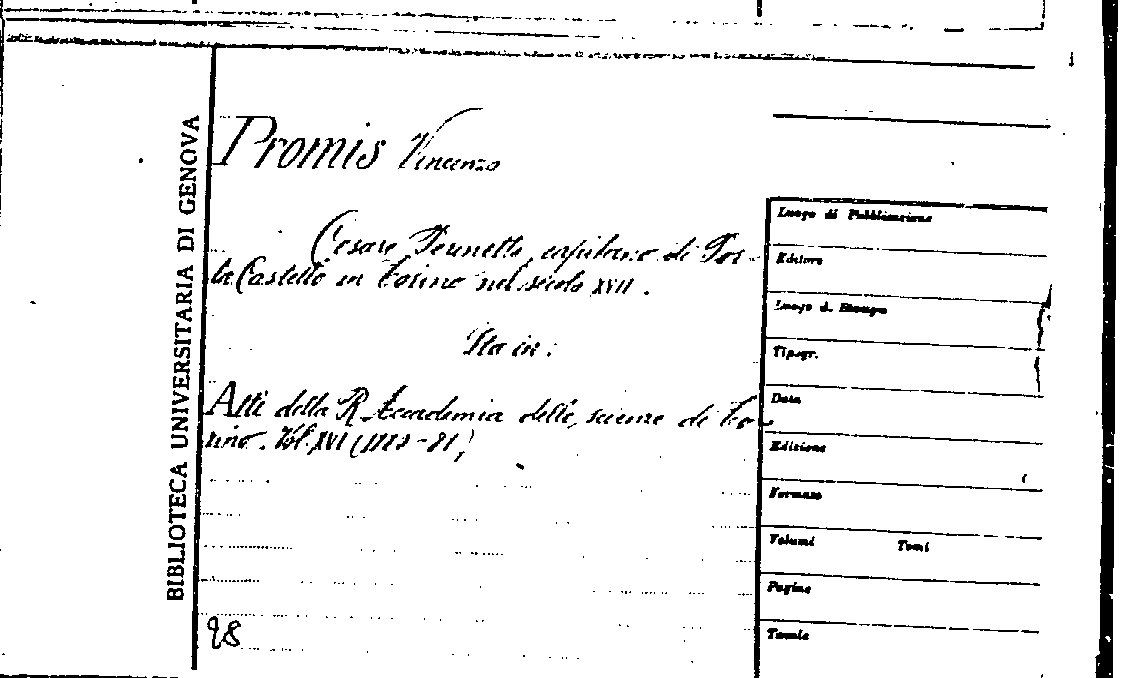 BIBLIOTECA UNIVERSITARIA DI GENOVA
Promis Vincenzo
Cesare capitano di Por-
ta Castello in Torino nel secolo XVII.
Sta in:
Atti della R. Accademia delle scienze di To-
rino. Vol. XVI (1880-81)
98
Luogo di Pubblicazione
Editore
Luogo di Stampa
Tipogr.
Data
Edizione
Formato
Volumi Tomi
Pagine
Tavole